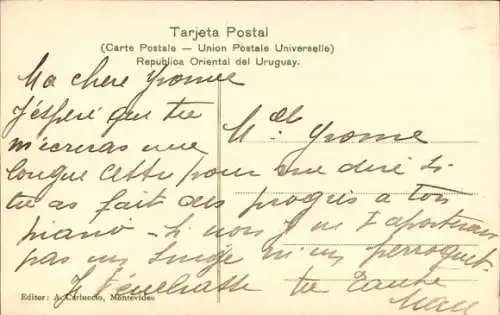 Tarjeta Postal
(Carte Postale — Union Postale Universelle)
Republica Oriental del Uruguay.
Ma chere Yvonne
J'espère que tu
m'ecriras une
Mlle. Yvonne
longue lettre pour me dire si
tu as fait des progrès a ton
piano – si non je ne t'aporterais
pas un singe ni un perroquet.
Je t'embrasse ta tante
Editor: A. Carluccio, Montevideo